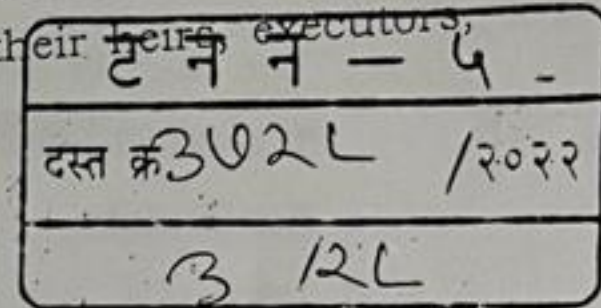 their heirs, executors,
ट न न – ५ -
दस्त क्र ३७२८ /२०२२
३ /२८